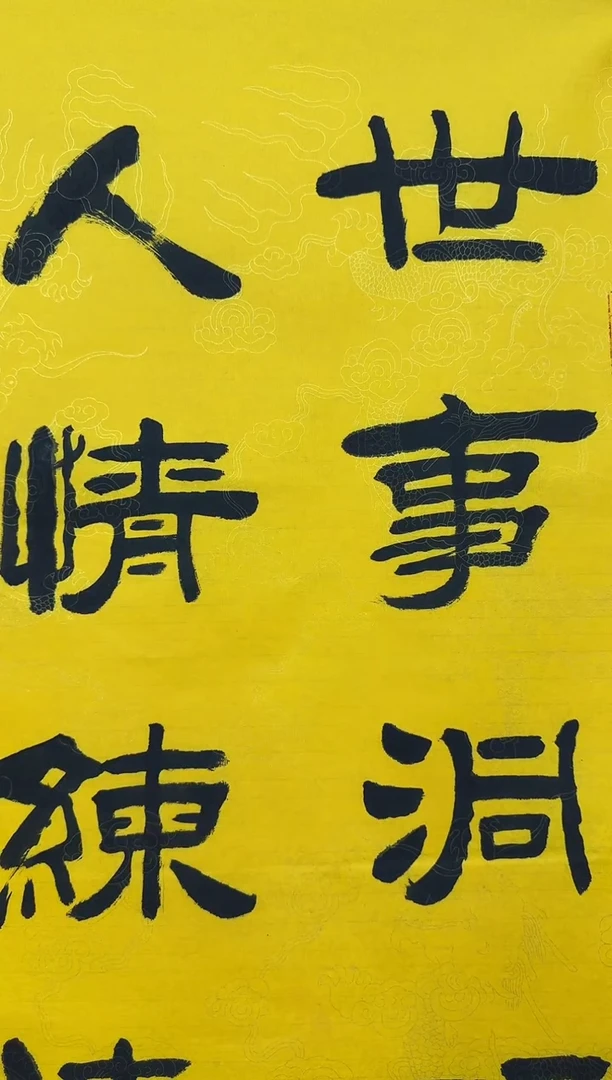 世事洞
人情練